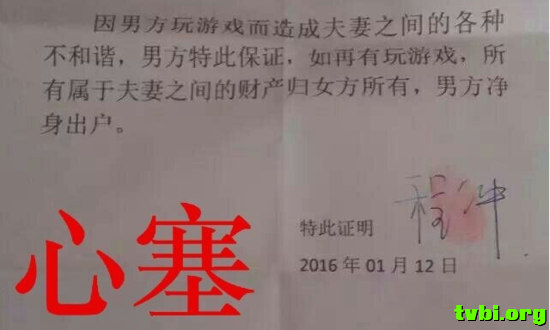 因男方玩游戏而造成夫妻之间的各种
不和谐，男方特此保证，如再有玩游戏，所
有属于夫妻之间的财产归女方所有，男方净
身出户。
特此证明 程冲
2016 年 01 月 12 日
心塞
tvbi.org